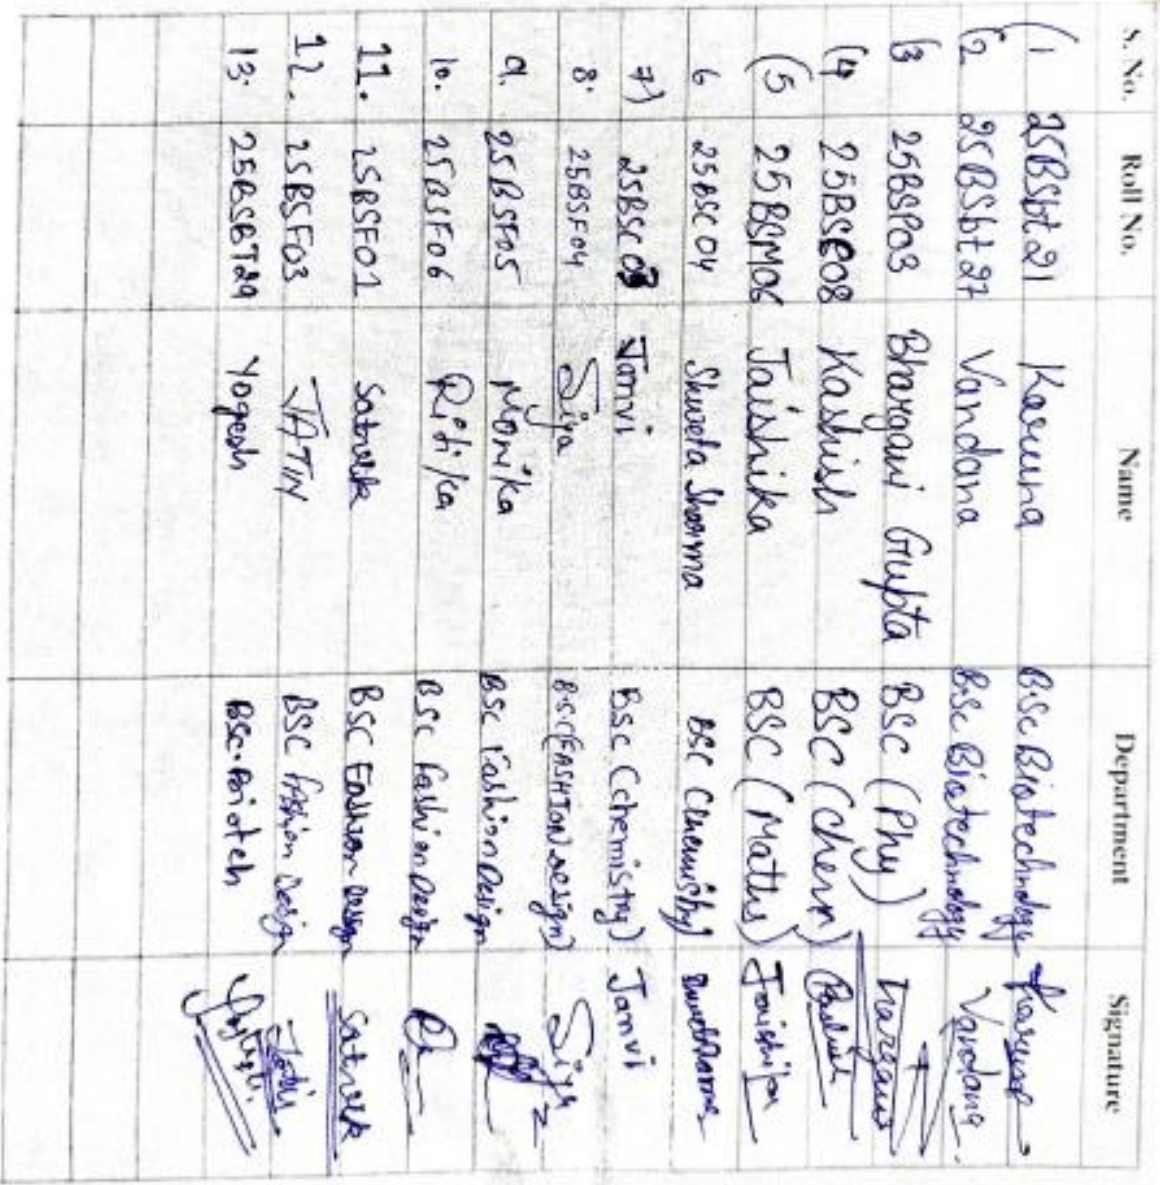 S. No. Roll No. Name Department Signature
(1 25BSbt21 Karuna BSc Biotechnology Karuna
(2 25BSbt27 Vandana BSc Biotechnology Vandana
(3 25BSP03 Bhargavi Gupta BSC (Phy)
(4 25BSC08 Kashish BSC (Chem)
(5 25BSM06 Jaishika BSC (Maths) Jaishika
6 25BSC04 Shweta Sharma BSC Chemistry
7) 25BSC03 Janvi BSC (Chemistry) Janvi
8. 25BSF04 Siya B.SC (FASHION Design) Siya
9. 25BSF05 Monika BSC Fashion Design
10. 25BSF06 Ritika BSC Fashion Design
11. 25BSF01 Satvik BSC Fashion Design Satvik
12. 25BSF03 JATIN BSC Fashion Design Jatin
13. 25BSBT29 Yogesh BSC.Biotech